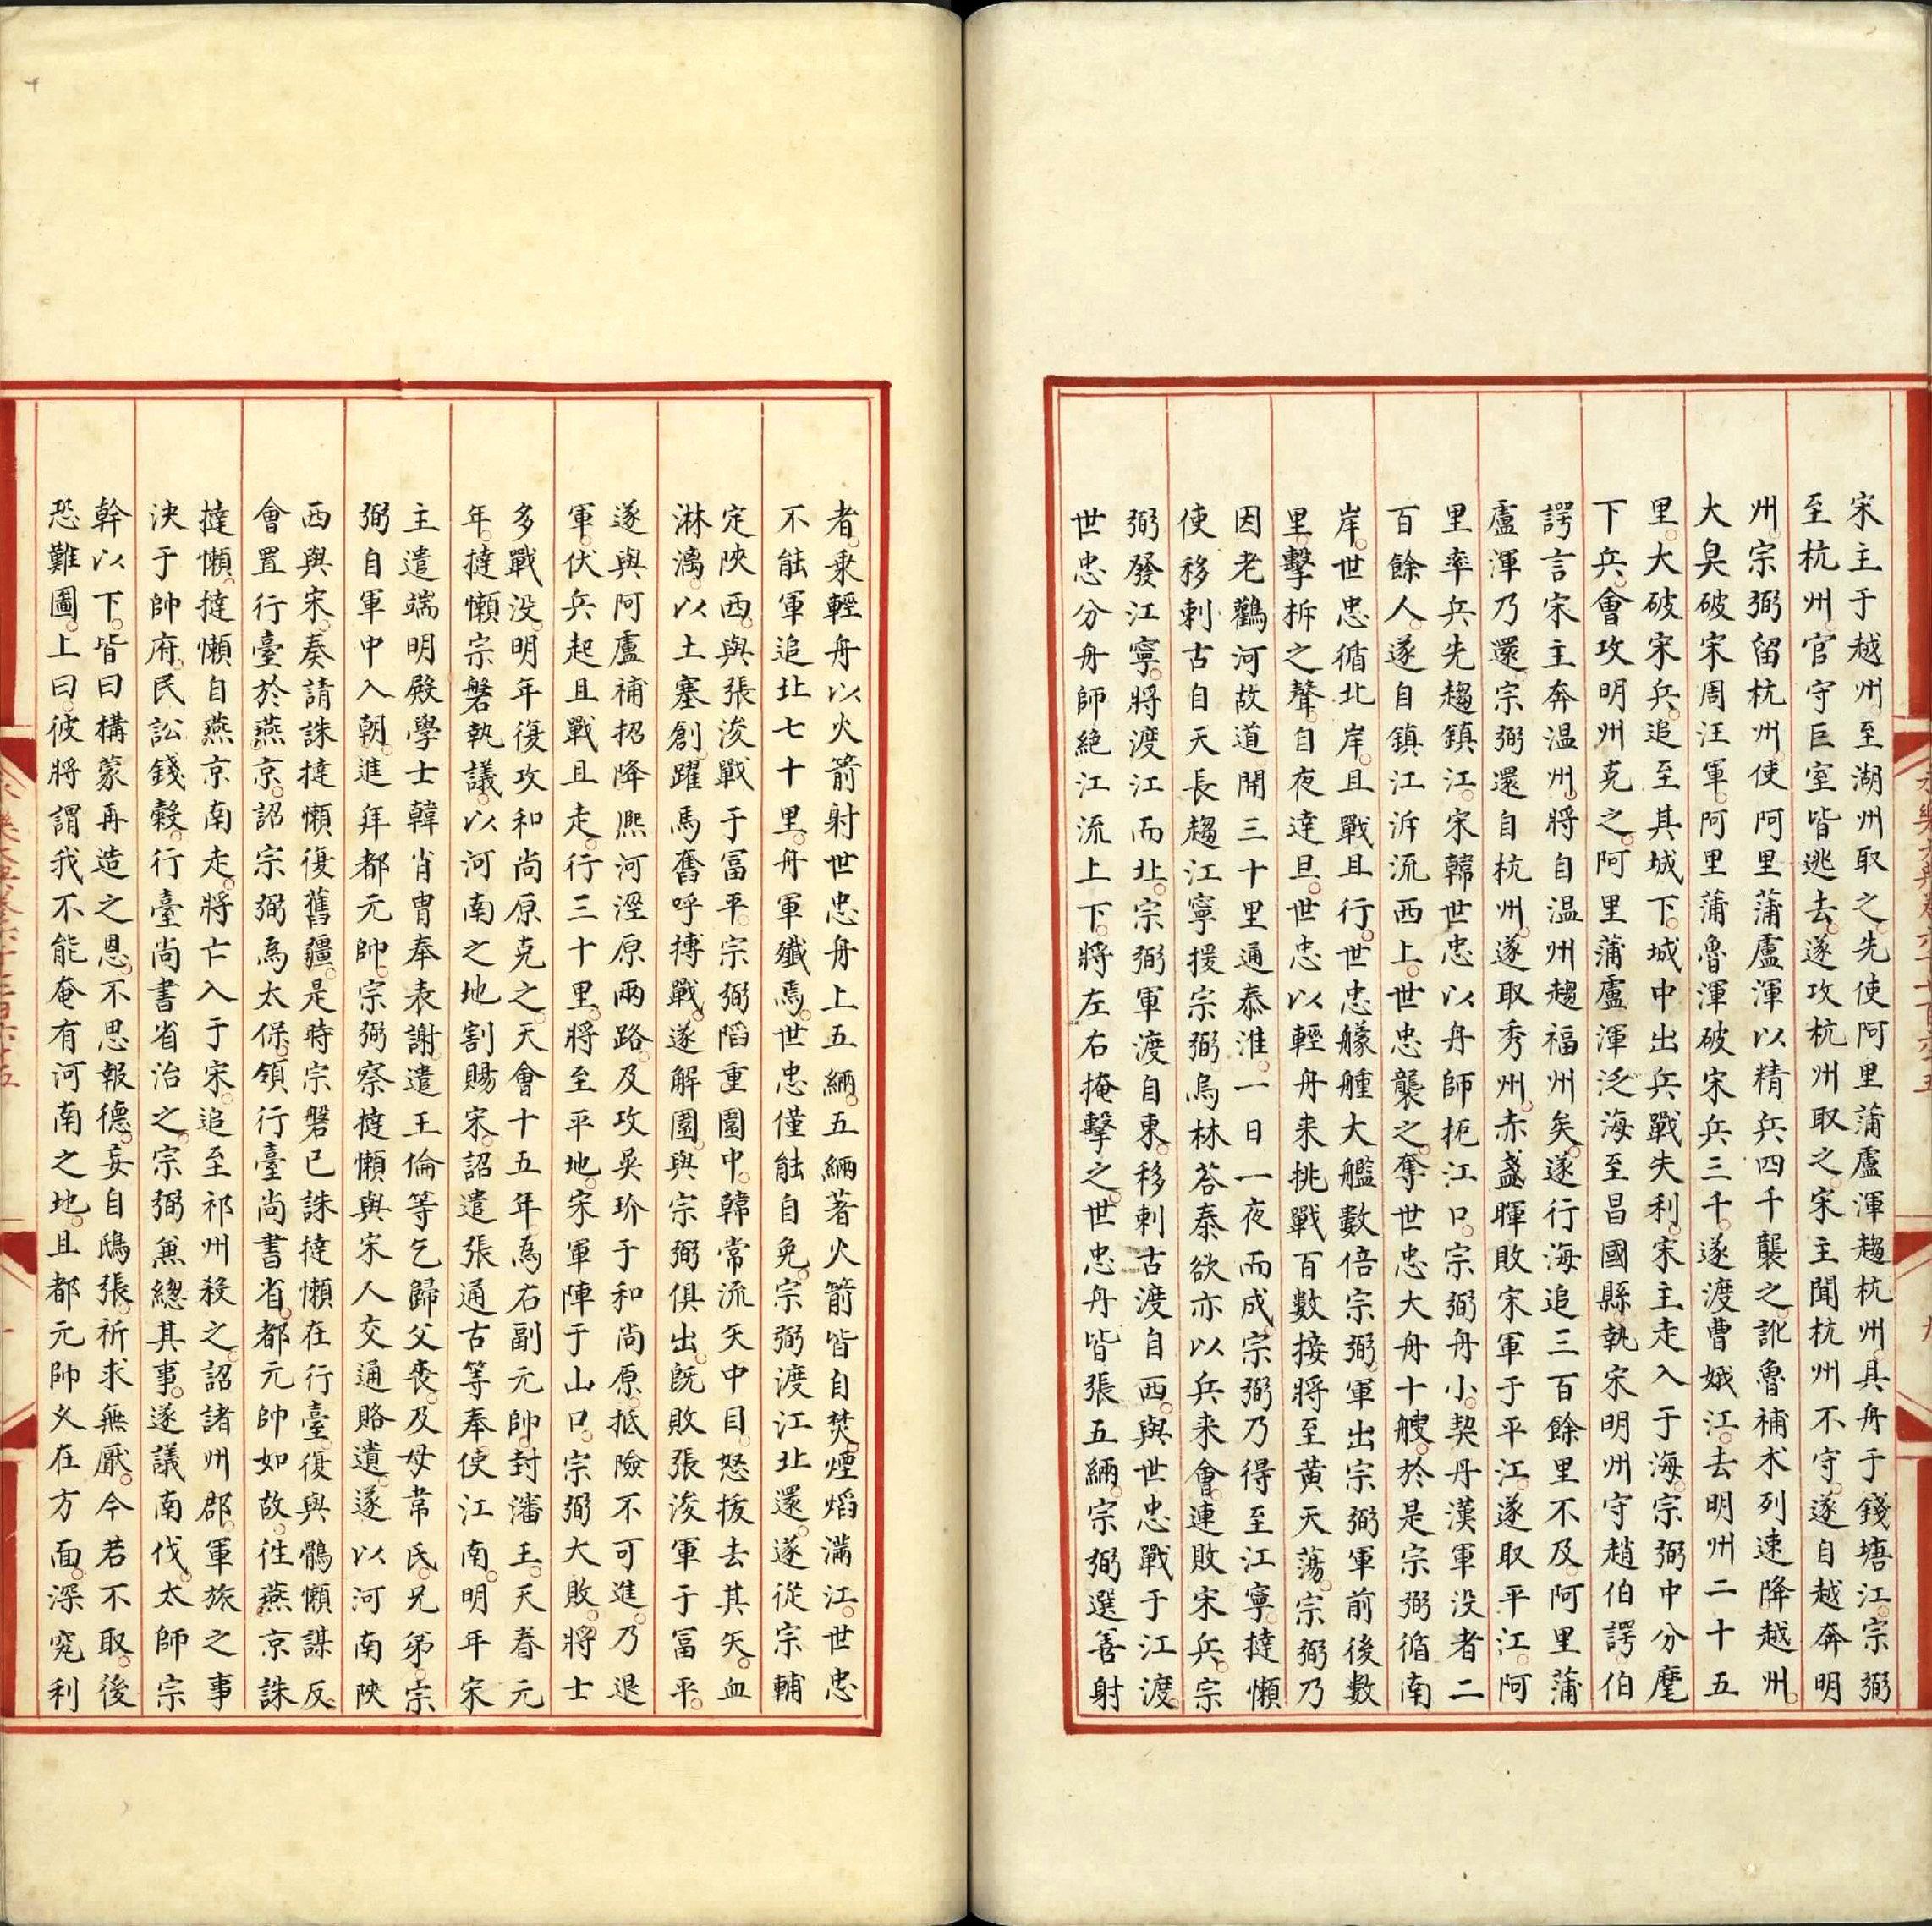 宋主于越州至湖州取之先使阿里蒲盧渾趨杭州具舟于錢塘江宗弼
至杭州官守巨室皆逃去遂攻杭州取之宋主聞杭州不守遂自越奔明
州宗弼留杭州使阿里蒲盧渾以精兵四千襲之訛魯補术列速降越州
大㚖破宋周汪軍阿里蒲魯渾破宋兵三千遂渡曹娥江去明州二十五
里大破宋兵追至其城下城中出兵戰失利宋主走入于海宗弼中分麾
下兵會攻明州克之阿里蒲盧渾泛海至昌國縣執宋明州守趙伯諤伯
諤言宋主奔温州將自温州趨福州矣遂行海追三百餘里不及阿里蒲
盧渾乃還宗弼還自杭州遂取秀州赤盞暉敗宋軍于平江遂取平江阿
里率兵先趨鎮江宋韓世忠以舟師扼江口宗弼舟小契丹漢軍没者二
百餘人遂自鎮江泝流西上世忠襲之奪世忠大舟十艘於是宗弼循南
岸世忠循北岸且戰且行世忠艨艟大艦數倍宗弼軍出宗弼軍前後數
里擊柝之聲自夜達旦世忠以輕舟来挑戰百數接將至黄天蕩宗弼乃
因老鸛河故道開三十里通秦淮一日一夜而成宗弼乃得至江寧撻懶
使移剌古自天長趨江寧援宗弼烏林荅泰欲亦以兵来會連敗宋兵宗
弼發江寧將渡江而北宗弼軍渡自東移剌古渡自西與世忠戰于江渡
世忠分舟師絶江流上下將左右掩擊之世忠舟皆張五緉宗弼選善射
者乗輕舟以火箭射世忠舟上五緉五緉著火箭皆自焚煙焰滿江世忠
不能軍追北七十里舟軍殲焉世忠僅能自免宗弼渡江北還遂從宗輔
定陝西與張浚戰于冨平宗弼䧟重圍中韓常流矢中目怒拔去其矢血
淋漓以土塞創躍馬奮呼搏戰遂解圍與宗弼俱出既敗張浚軍于冨平
遂與阿盧補招降熈河涇原兩路及攻吴玠于和尚原抵險不可進乃退
軍伏兵起且戰且走行三十里將至平地宋軍陣于山口宗弼大敗將士
多戰没明年復攻和尚原克之天會十五年為右副元帥封瀋王天眷元
年撻懶宗磐執議以河南之地割賜宋詔遣張通古等奉使江南明年宋
主遣端明殿學士韓肖胄奉表謝遣王倫等乞歸父喪及母韋氏兄弟宗
弼自軍中入朝進拜都元帥宗弼察撻懶與宋人交通賂遺遂以河南陜
西與宋奏請誅撻懶復舊疆是時宗磐已誅撻懶在行臺復與鶻懶謀反
會置行臺於燕京詔宗弼爲太保領行臺尚書省都元帥如故徃燕京誅
撻懶撻懶自燕京南走將亡入于宋追至祁州殺之詔諸州郡軍旅之事
決于帥府民訟錢穀行臺尚書省治之宗弼兼總其事遂議南伐太師宗
幹以下皆曰構蒙再造之恩不思報德妄自鴟張祈求無厭今若不取後
恐難圖上曰彼將謂我不能奄有河南之地且都元帥久在方面深究利